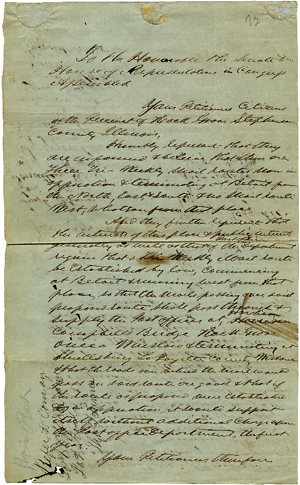 72
To the Honorable the Senate &
House of Representatives in Congress
Assembled
Your Petitioners Citizens
of the Precinct of Rock Grove Stephenson
County Illinois,
Humbly represent that they
are informed & believe that there are
three Tri-Weekly Mail routes now in
operation & terminating at Beloit from
the North, East & South & no Mail route
West, from that place
And they further represent that
the interests of this place & Public
generally as well as that of the Department
require that a Weekly Mail route
be Established by law, Commencing
at Beloit & running west from that
place, so that the Mails passing over said
proposed route shall pass through &
supply the Post offices at
Campbells Bridge Rock Grove
Oneco Winslow & terminating
at Shullsburg La Fayette County Wisconsin
& that the road over which the mail would
pass on said route is good & that if
the route as proposed were established
& in operation, it would support
itself without additional Charge upon
the Post office Department, the first
year.
Your Petitioners therefore